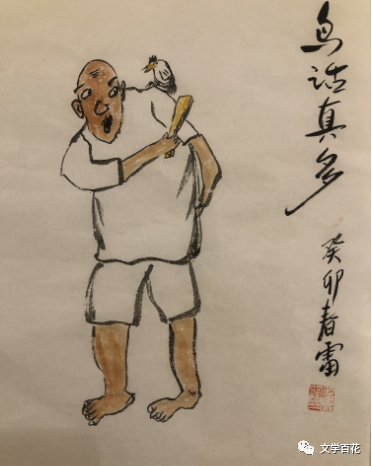 鸟话真多
癸卯春雷
文学百花